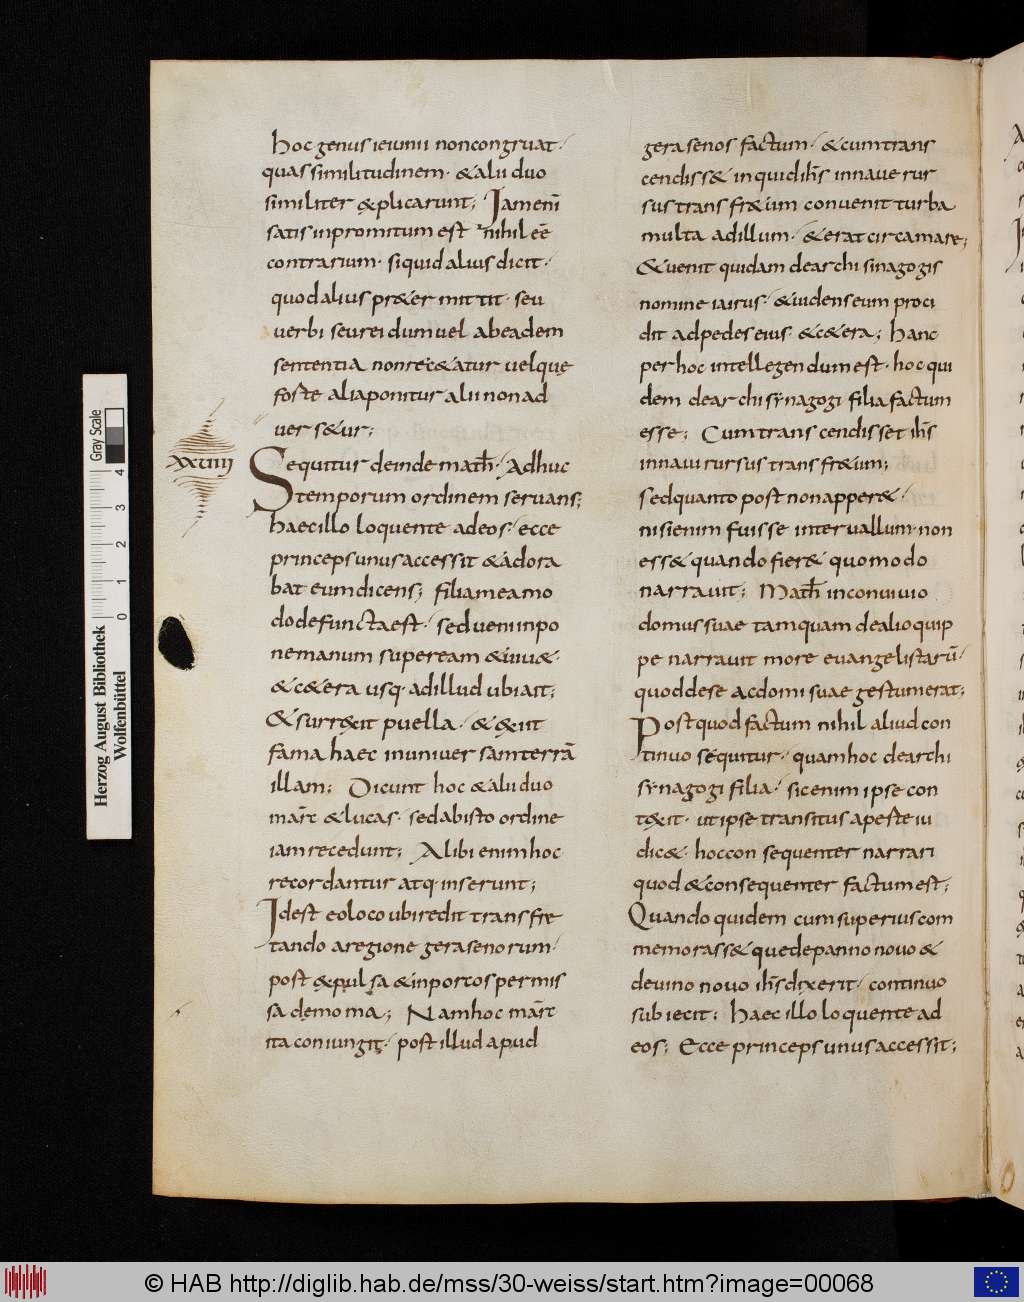 hoc genus ieiunii non congruat·
quas similitudinem· & alii duo
similiter explicarunt; Iam enī
satis inpromitum est nihil eē
contrarium· si quid alius dicit·
quod alius pr&ermittit· seu
uerbi seu rei dum uel ab eadem
sententia non rec&atur uel quę
foste alia ponitur alii non ad
uers&ur;
xxuiiii
Sequitur deinde math̄· Adhuc
temporum ordinem seruans;
haec illo loquente ad eos· ecce
princeps unus accessit & adora
bat eum dicens; filia mea mo
do defuncta est· sed ueni inpo
ne manum super eam & uiu&·
& c&era usq· ad illud ubi ait;
& surrexit puella· & exiit
fama haec in uniuersam terrā
illam; Dicunt hoc & alii duo
mārc & lucas· sed ab isto ordine
iam recedunt; Alibi enim hoc
recordantur atq· inserunt;
Id est eo loco ubi redit transfre
tando a regione gerasenorum·
post expulsa & in porcos permis
sa demoma; Nam hoc mārc
ita coniungit· post illud apud
gerasenos factum· & cum trans
cendiss& inquid ih̄s in naue rur
sus trans fr&um conuenit turba
multa ad illum· & erat circa mare;
& uenit quidam de archisinagogis
nomine iairus· & uidens eum proci
dit ad pedes eius· & c&era; hanc
per hoc intellegendum est· hoc qui
dem de archisynagogi filia factum
esse; Cum transcendisset ih̄s
in naui rursus trans fr&um;
sed quanto post non apper&·
nisi enim fuisse interuallum· non
ess& quando fier& quomodo
narrauit; Math̄ in conuiuio
domus suae tamquam de alio quip
pe narrauit more euangelistarū·
quod de se ac domi suae gestum erat;
Post quod factum nihil aliud con
tinuo sequitur· quam hoc de archi
synagogi filia· sic enim ipse con
texit· ut ipse transitus apeste iu
dic&· hoc consequenter narrari
quod & consequenter factum est;
Quando quidem cum superius com
memorass& que de panno nouo &
de uino nouo ih̄s dixerit· continuo
subiecit; haec illo loquente ad
eos; Ecce princeps unus accessit;
Herzog August Bibliothek
Wolfenbüttel
0 1 2 3 4
Gray Scale
© HAB http://diglib.hab.de/mss/30-weiss/start.htm?image=00068